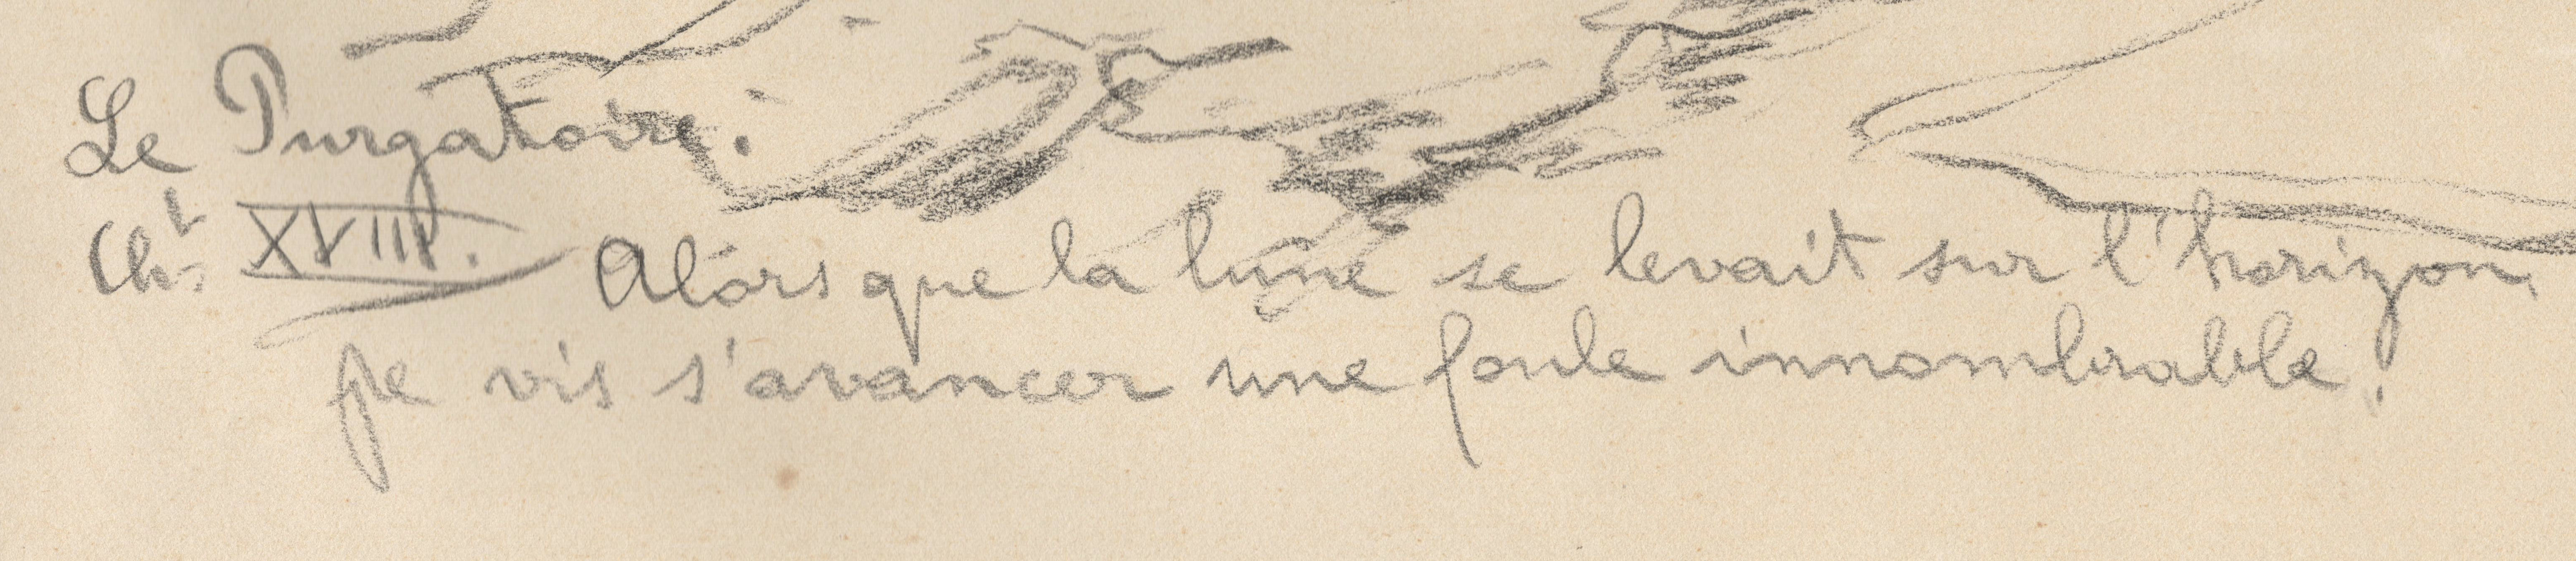 Le Purgatoire.
Cht XVIII. Alors que la lune se levait sur l'horizon,
je vis s'avancer une foule innombrable.